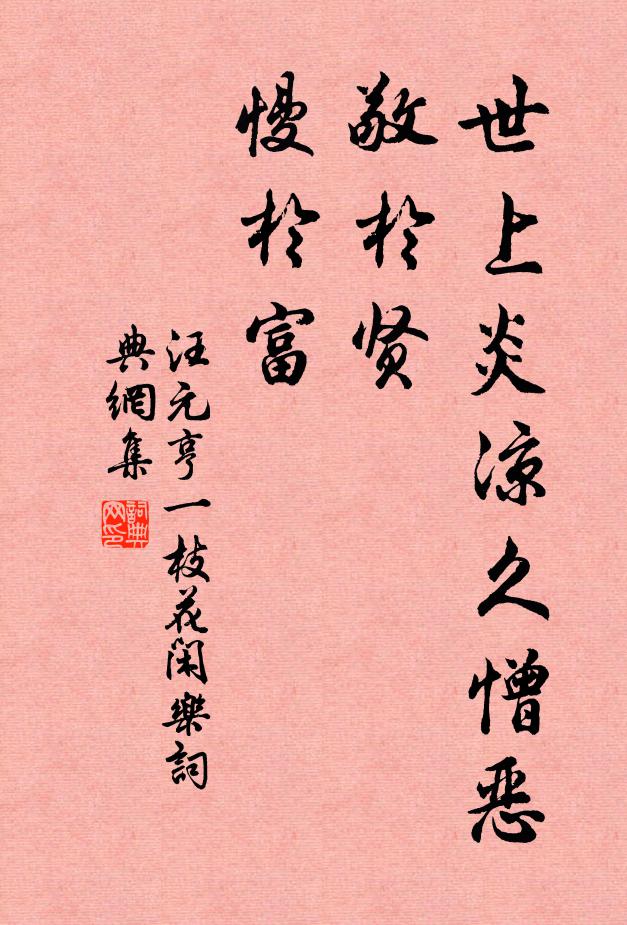 世上炎凉久憎恶
敬於贤
慢於富
汪元亨一枝花闲樂詞
典網集
詞典
网印